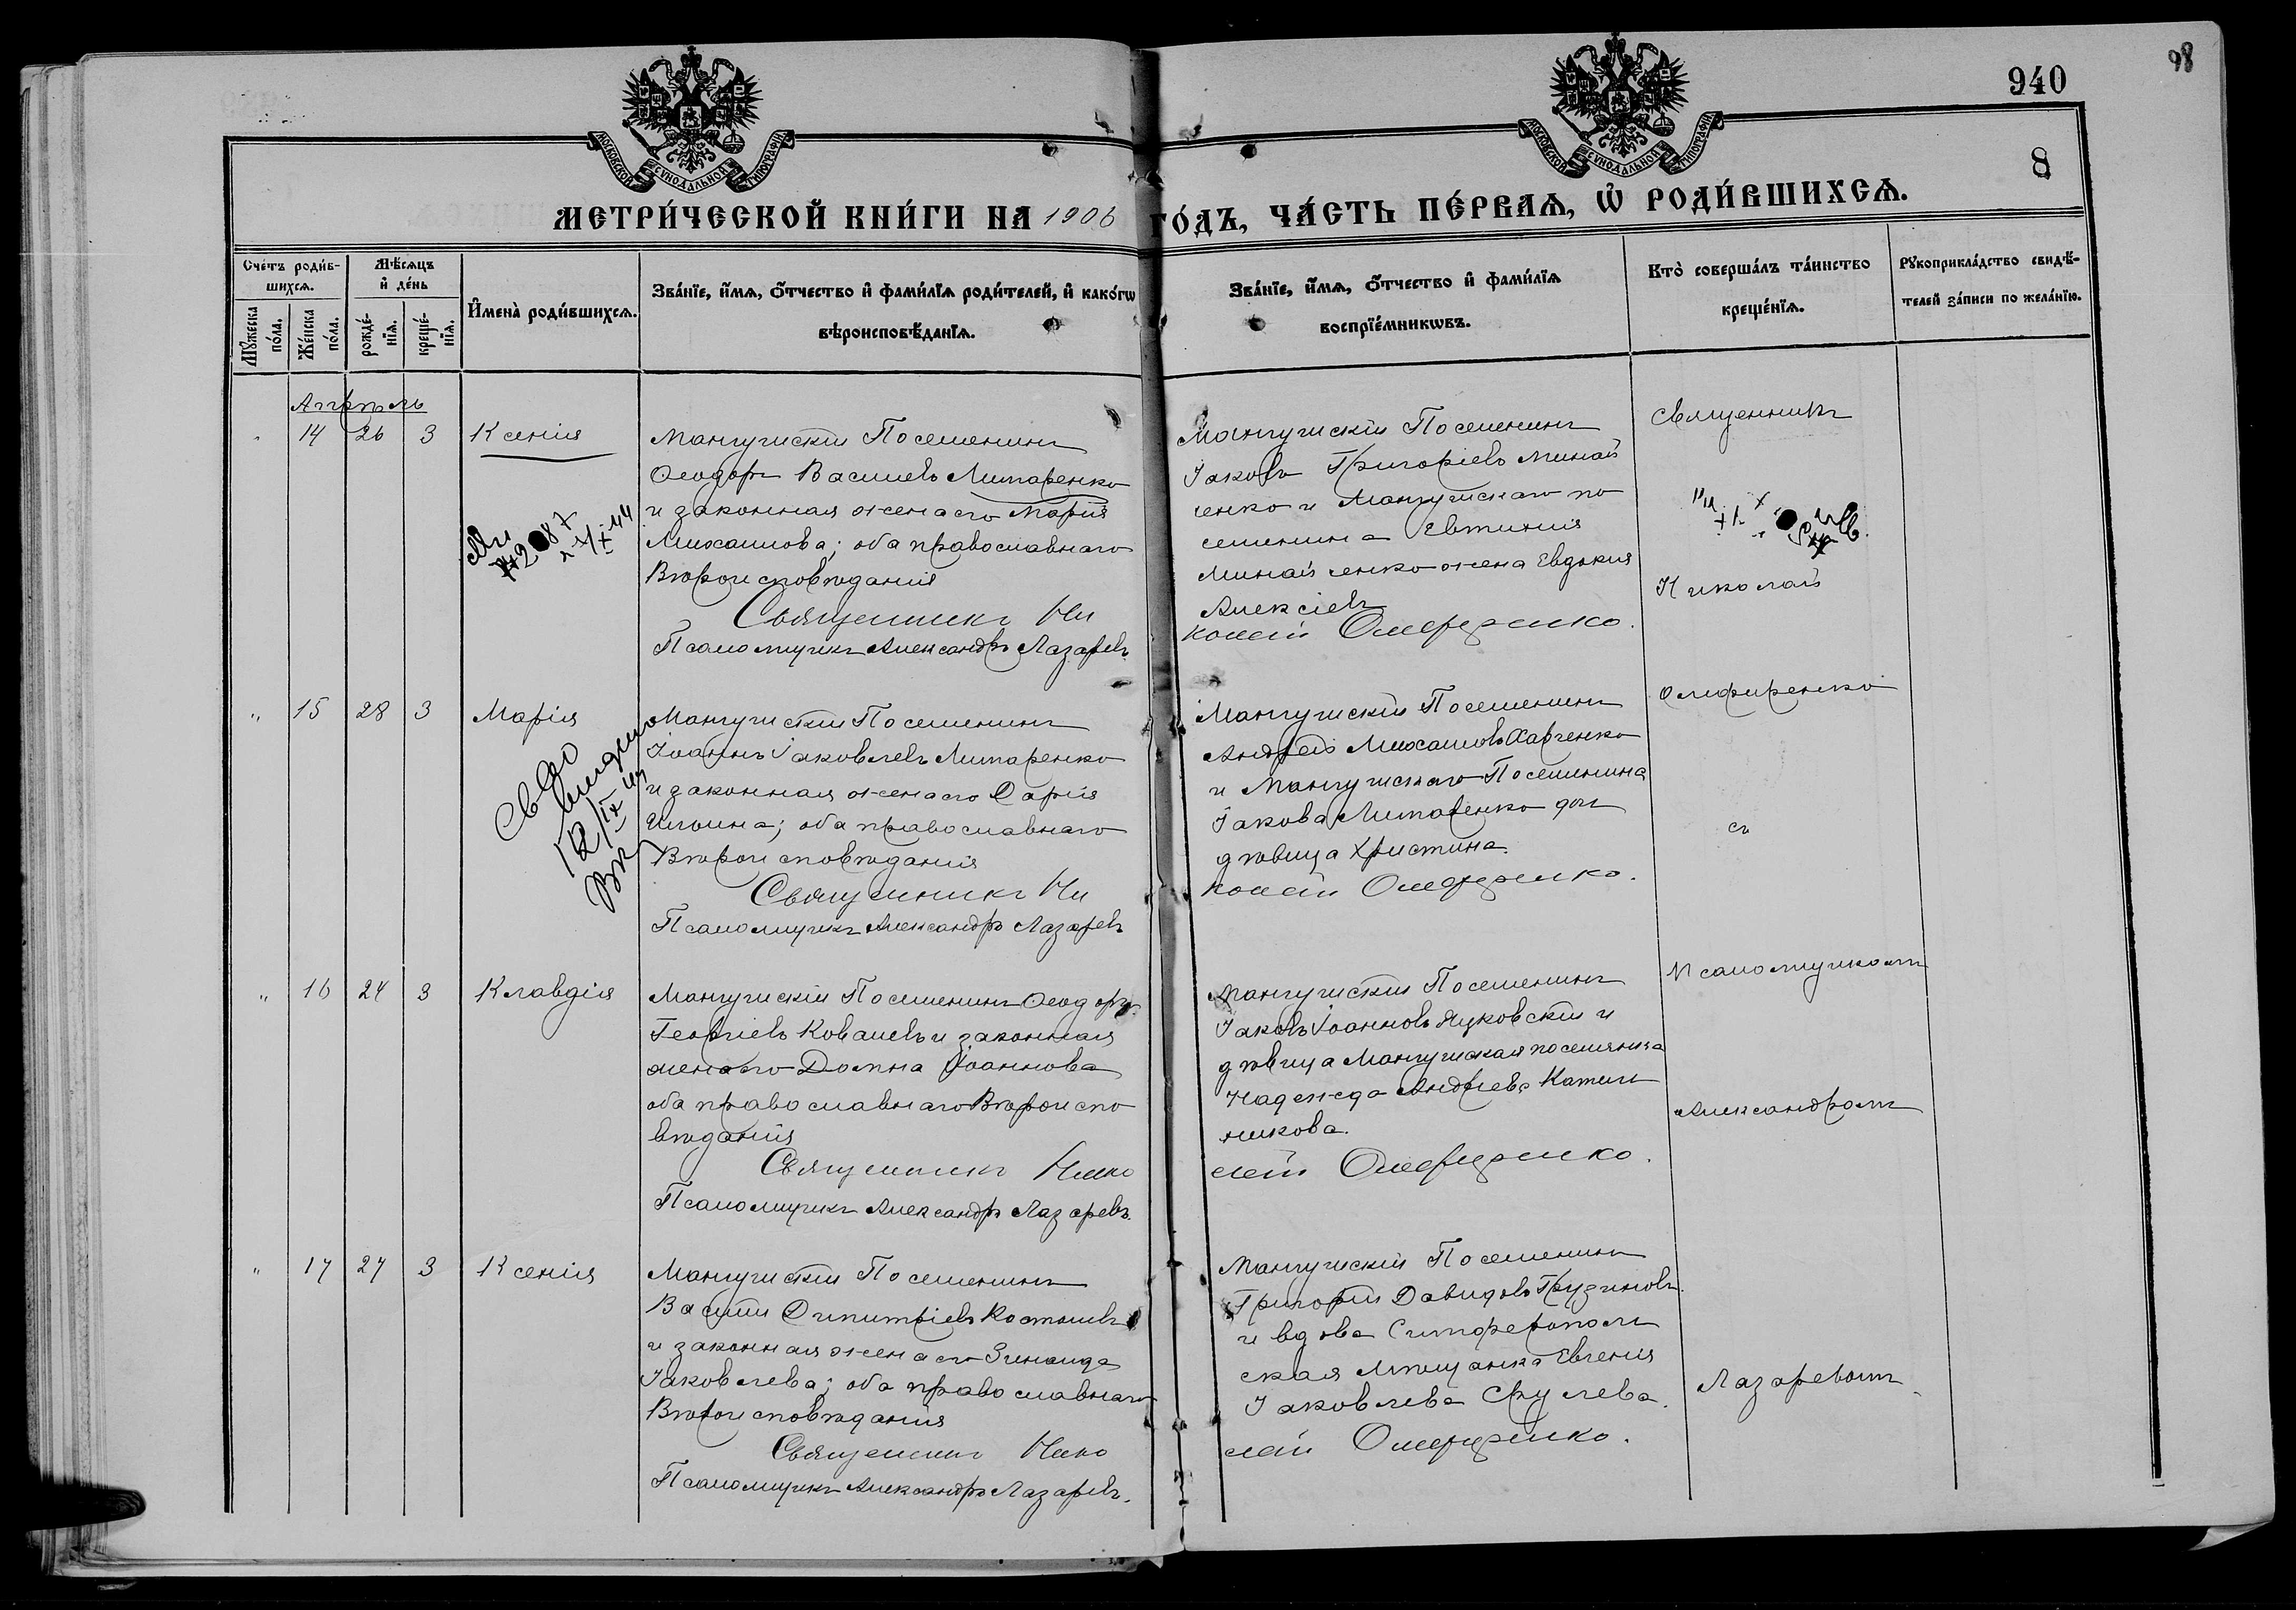 98
940
8
МОСКОВСКОЙ СѴНОДАЛЬНОЙ ТИПОГРАФІИ
МОСКОВСКОЙ СѴНОДАЛЬНОЙ ТИПОГРАФІИ
МЕТРИ́ЧЕСКОЙ КНИ́ГИ НА 1906 ГО́ДЪ, ЧА́СТЬ ПЕ́РВАѦ, Ѡ҆ РОДИ́ВШИХСѦ.
Сче́тъ роди́в-
шихсѧ.
Мѣ́сѧцъ
и҆ де́нь
Мꙋ́жеска по́ла.
Же́нска по́ла.
рожде́-
нїѧ.
креще́-
нїѧ.
И҆мена̀ роди́вшихсѧ.
Зва́нїе, и҆́мѧ, ѻ҆́тчество и҆ фами́лїѧ роди́телей, и҆ како́гѡ
вѣроисповѣ́данїѧ.
Зва́нїе, и҆́мѧ, ѻ҆́тчество и҆ фами́лїѧ
воспрїе́мникѡвъ.
Кто̀ соверша́лъ та́инство
креще́нїѧ.
Рꙋкоприкла́дство свидѣ́-
телей за́писи по жела́нїю.
Апрѣль
" 14 26 3 Ксенія
Мангушскій Поселенинъ
Ѳеодоръ Васильевъ Литаренко
и законная жена его Марія
Михаилова; оба православнаго
Вѣроисповѣданія
Священникъ Ни
Псаломщикъ Александръ Лазаревъ
Мангушскій Поселенинъ
Іаковъ Григоріевъ Минай
ченко и Мангушскаго по
селенина Евтихія
Минайченко жена Евдокия
Алексіев
колай Олефиренко.
Священникъ
Николай
" 15 28 3 Марія
Св-во
выдано
12/IX
Мангушскій Поселенинъ
Іоаннъ Іаковлевъ Литаренко
и законная жена его Дарія
Ильина; оба православнаго
Вѣроисповѣданія
Священникъ Ни
Псаломщикъ Александръ Лазаревъ
Мангушскій Поселенинъ
Андрей Михаиловъ Харченко
и Мангушскаго Поселенина
Іакова Литаренко доч
дѣвица Христина.
колай Олефиренко.
Олефиренко
съ
" 16 24 3 Клавдія
Мангушскій Поселенинъ Ѳеодоръ
Георгіевъ Ковалевъ и законная
жена его Домна Іоаннова
оба православнаго Вѣроиспо
вѣданія
Священникъ Нико
Псаломщикъ Александръ Лазаревъ.
Мангушскій Поселенинъ
Іаковъ Іоанновъ Жуковскій и
дѣвица Мангушская поселянка
Надежда Андреева Калаш
никова.
лай Олефиренко.
Псаломщикомъ
Александромъ
" 17 27 3 Ксенія
Мангушскій Поселенинъ
Василій Димитріевъ Костылевъ
и законная жена его Зинаида
Іаковлева; оба православнаго
Вѣроисповѣданія
Священникъ Нико
Псаломщикъ Александръ Лазаревъ.
Мангушскій Поселенинъ
Григорій Давидовъ Грузиновъ
и вдова Симферополь
ская мѣщанка Евгенія
Іаковлева
лай Олефиренко.
Лазаревымъ